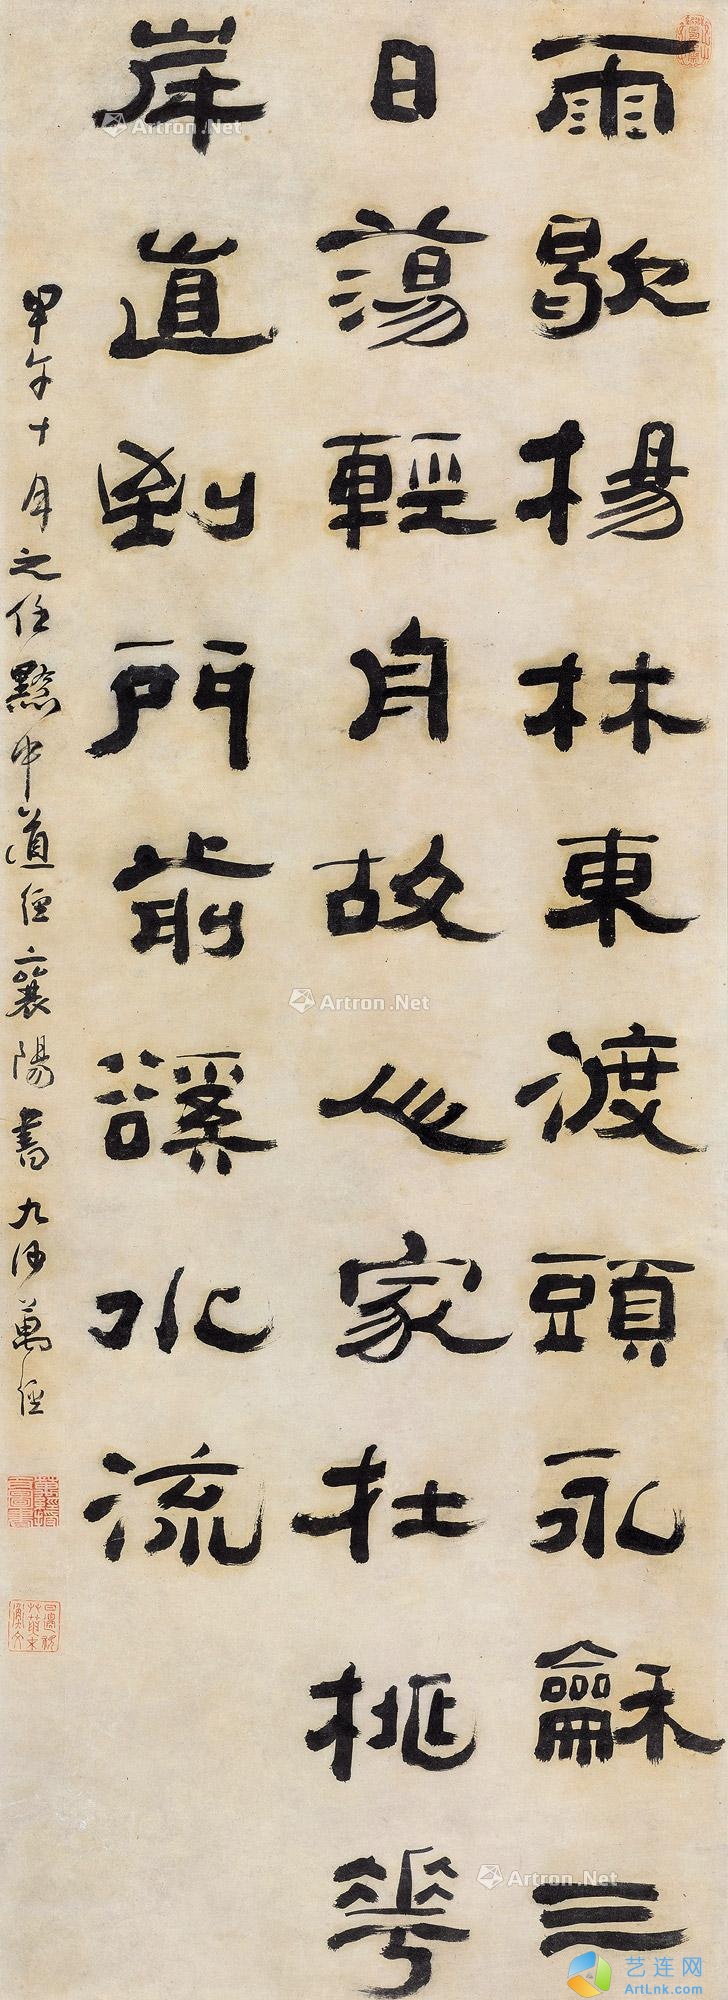 雨歇楊林東渡頭永龢三
日蕩輕舟故人家在桃花
岸直到門前谿水流
甲午十月之任黔中道經襄陽書九沙萬經
Artron.Net
Artron.Net
Artron.Net
艺连网
ArtLnk.com